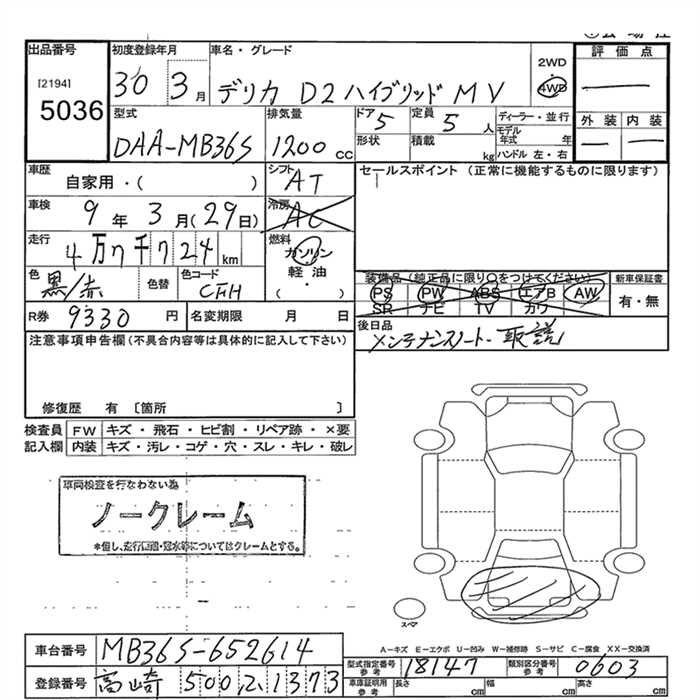 出品番号 初度登録年月 車名・グレード 2WD 評価点
[2194] 30 3月 デリカ D2 ハイブリッド MV 4WD ―
5036
型式 排気量 ドア 定員 ディーラー・並行 外装 内装
DAA-MB36S 1200cc 5 5人 モデル年式 年 ― ―
形状 積載 kg ハンドル 左・右
車歴 自家用・( ) シフト AT セールスポイント (正常に機能するものに限ります)
車検 9年3月(29日) 冷房 AC
走行 4万7千724km 燃料 ガソリン
軽油・( )
色 黒/赤 色替 色コード CFH
装備品(純正品に限り○をつけてください) 新車保証書
PS PW ABS エアB AW 有・無
SR ナビ TV カワ
R券 9330円 名変期限 月 日 後日品
メンテナンスノート・取説
注意事項申告欄(不具合内容等は具体的に記入して下さい)
修復歴 有 〔箇所 〕
検査員 FW キズ・飛石・ヒビ割・リペア跡・×要
記入欄 内装 キズ・汚レ・コゲ・穴・スレ・キレ・破レ
車両検査を行なわない為
ノークレーム
*但し、走行距離・冠水等についてはクレームとする。
スペア
A-キズ E-エクボ U-凹み W-補修跡 S-サビ C-腐食 XX-交換済
車台番号 MB36S-652614 型式指定番号 参考 18147 類別区分番号 参考 0603
登録番号 高崎 500 に 1373 車庫証明用 参考 長さ cm 幅 cm 高さ cm